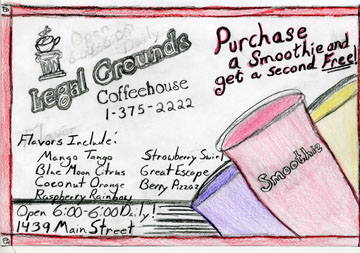 Legal Grounds
Coffeehouse
1-375-2222
Purchase
a Smoothie and
get a second Free!
Flavors Include:
Mango Tango
Blue Moon Citrus
Coconut Orange
Raspberry Rainbow
Strawberry Swirl
Great Escape
Berry Pizazz
Open 6:00-6:00 Daily!
1439 Main Street
Smoothie
Open
6:00-6:00 Daily